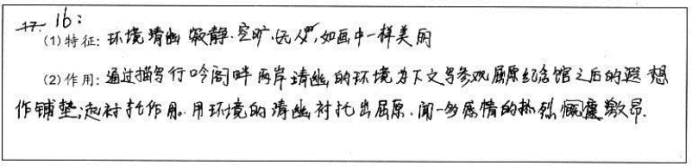 17. 16:
(1)特征:环境清幽 寂静.空旷.优美,如画中一样美丽
(2)作用:通过描写行吟阁畔两岸清幽的环境为下文写参观屈原纪念馆之后的遐想
作铺垫;起衬托作用。用环境的清幽衬托出屈原.闻一多感情的热烈 慷慨激昂.